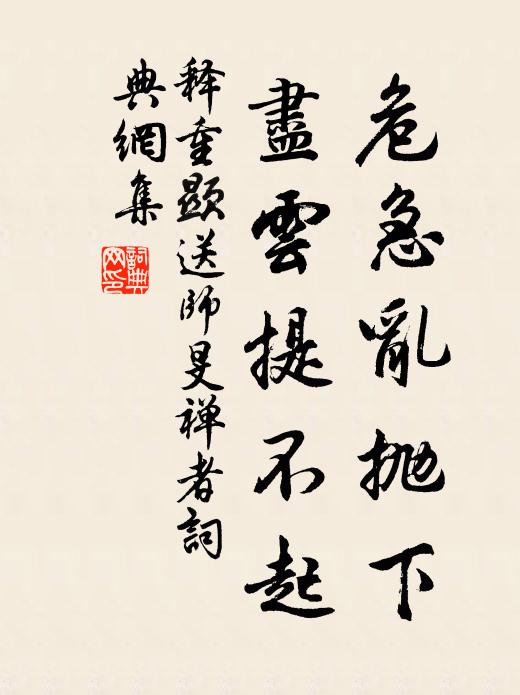 危急亂抛下
盡雲提不起
释重顯送師旻禅者詞
典網集
詞典
网印